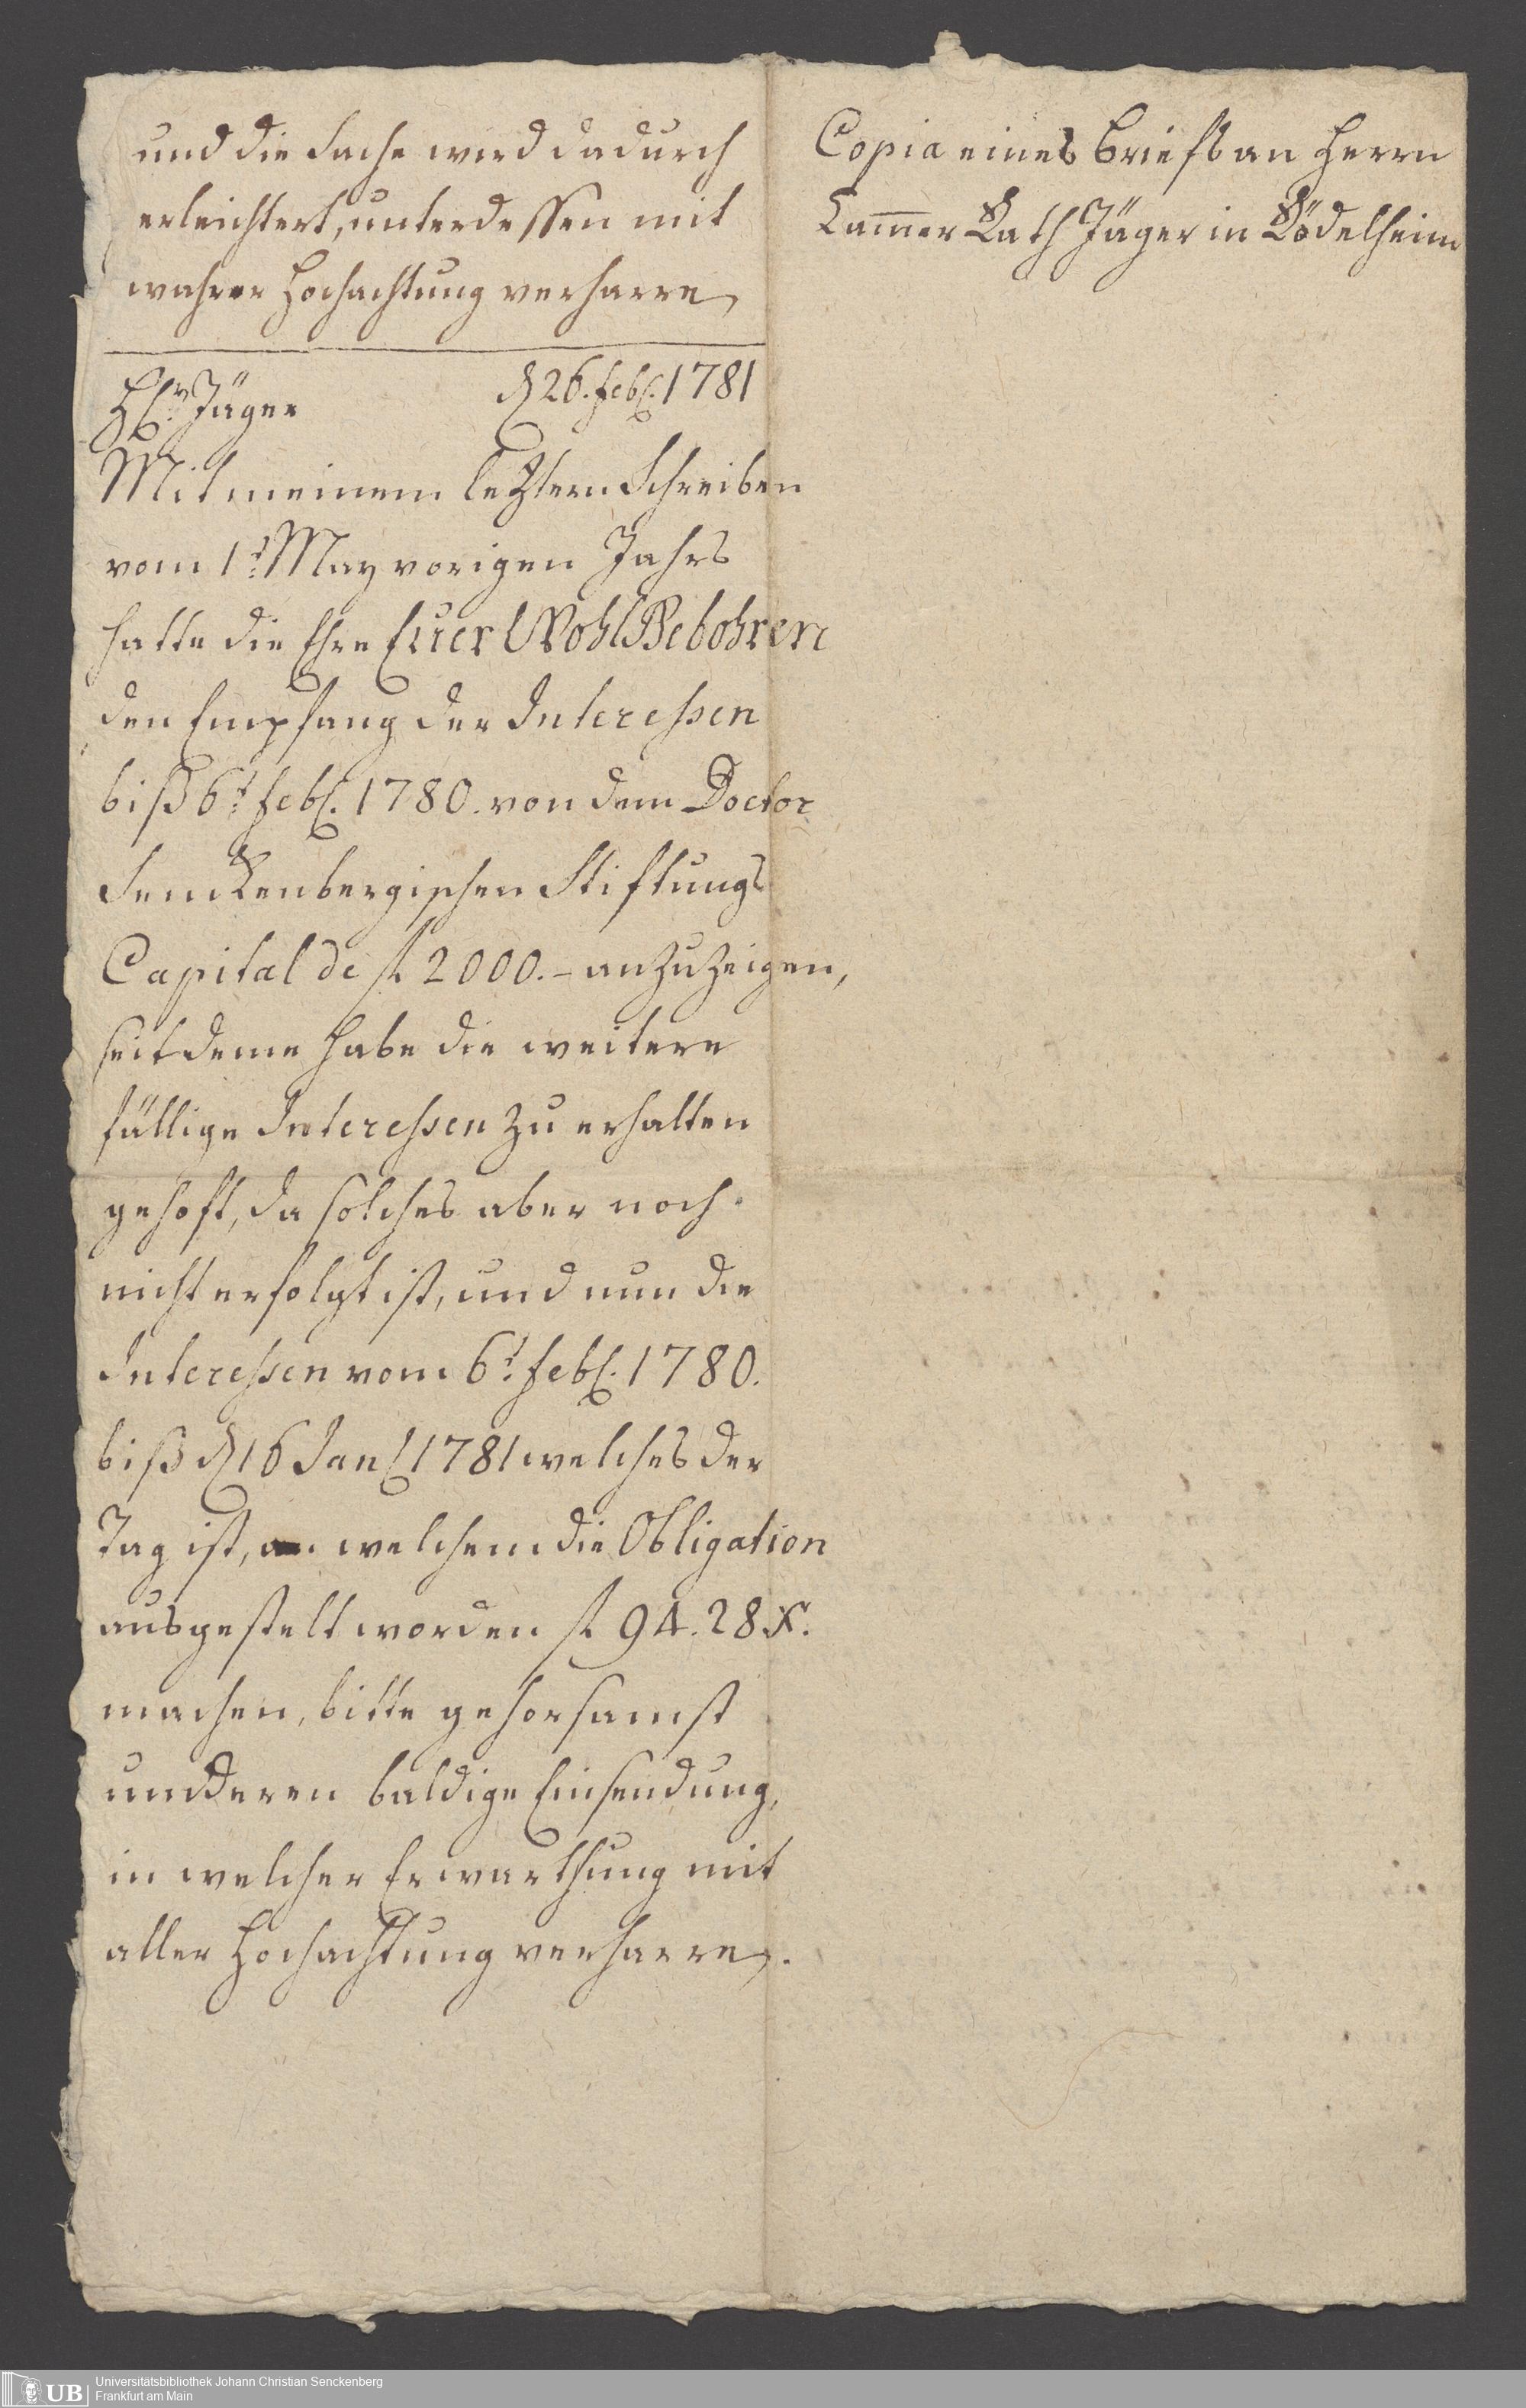 und die Sache wird dadurch
erleichtert, unterdessen mit
wahrer Hochachtung verharre,
H. Jäger d 26. febr. 1781
Mit meinem leztern Schreiben
vom 1t May vorigen Jahrs
hatte die Ehre Euer WohlGebohren
den Empfang der Interessen
biß 6t febr. 1780. von dem Doctor
Senckenbergischen Stiftungs
Capital de fl 2000.- anzuzeigen,
seit deme habe die weitere
fällige Interessen zu erhalten
gehoft, da solches aber noch
nicht erfolgt ist, und nun die
Interessen vom 6t febr. 1780.
biß d 16 Janr 1781 welches der
Tag ist, an welchem die Obligation
ausgestelt worden fl 94. 28 x.
machen, bitte gehorsamst
um deren baldige Einsendung,
in welcher Erwarthung mit
aller Hochachtung verharre.
Copia eines Briefs an Herrn
Cam̅er Rath Jäger in Rödelheim
Universitätsbibliothek Johann Christian Senckenberg
Frankfurt am Main
UB